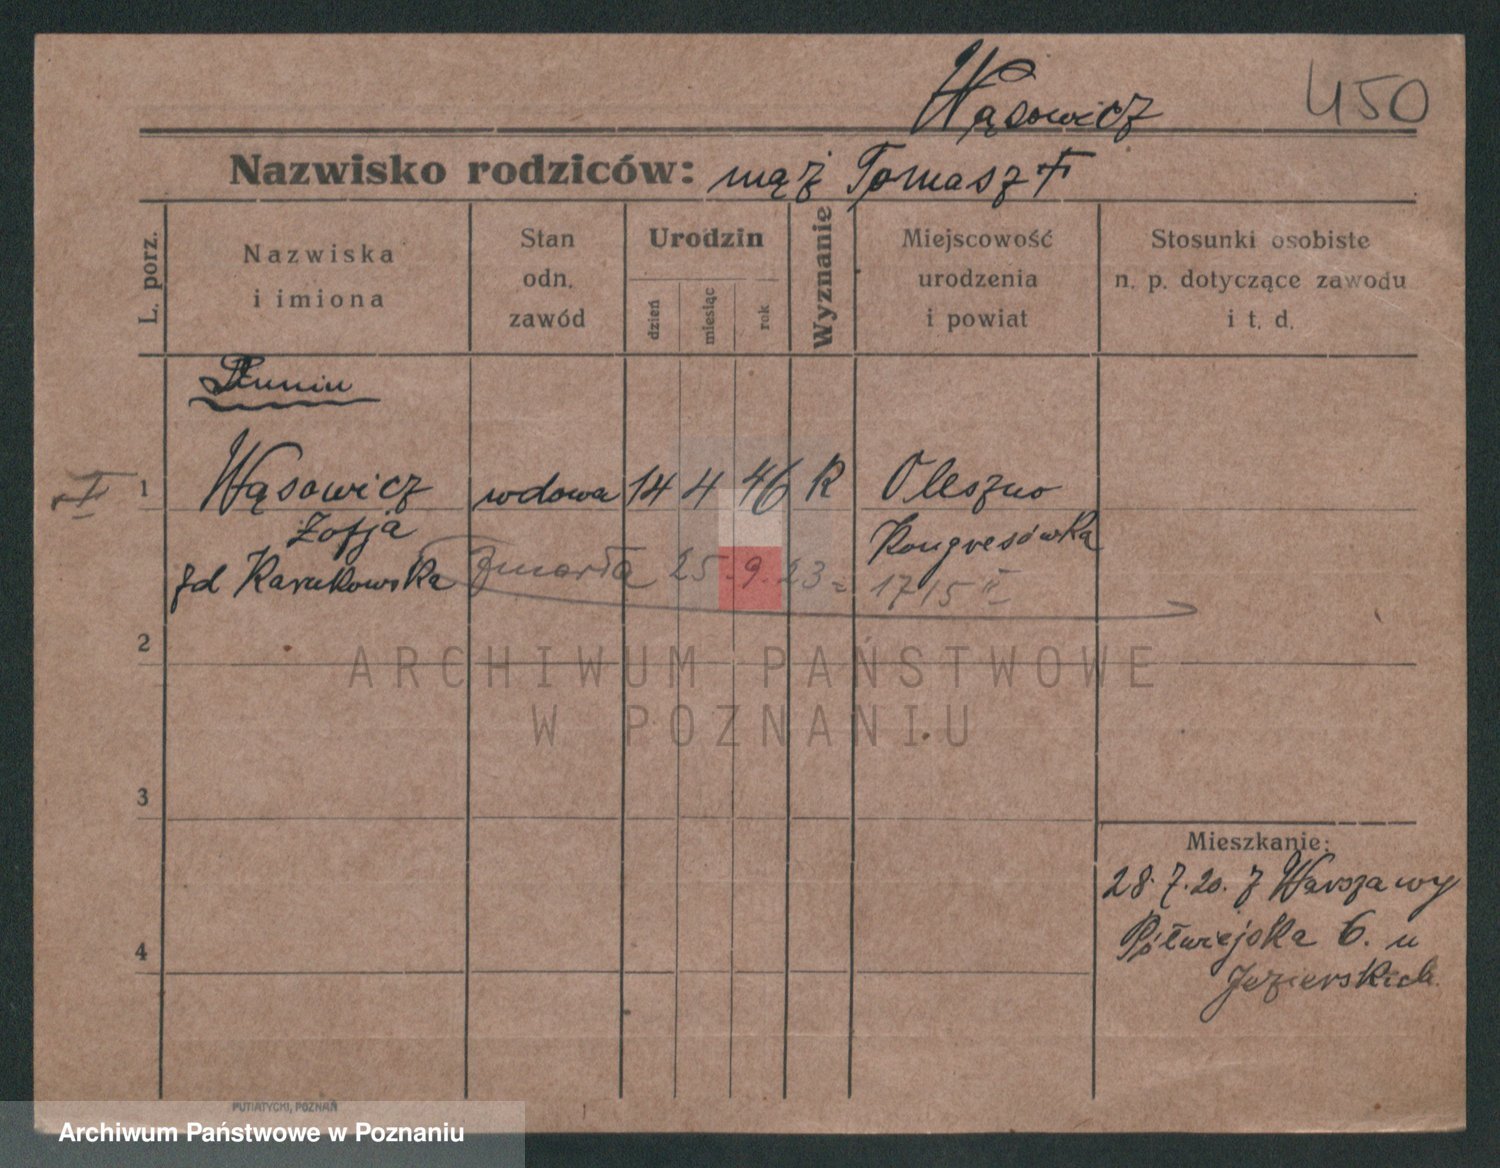 Wąsowicz 450
Nazwisko rodziców: mąż Tomasz †
L. porz.
Nazwiska
i imiona
Stan
odn.
zawód
Urodzin
dzień
miesiąc
rok
Wyznanie
Miejscowość
urodzenia
i powiat
Stosunki osobiste
n. p. dotyczące zawodu
i t. d.
Dunin
† 1 Wąsowicz wdowa 14 4 46 R Oleszno
Zofja Kongresówka
zd Karukowska zmarła 25.9.23 = 1715 II
2
ARCHIWUM PAŃSTWOWE
W POZNANIU
3
Mieszkanie:
28.7.20. z Warszawy
Półwiejska 6. u
Jezierskich
4
PUTIATYCKI, POZNAŃ
Archiwum Państwowe w Poznaniu